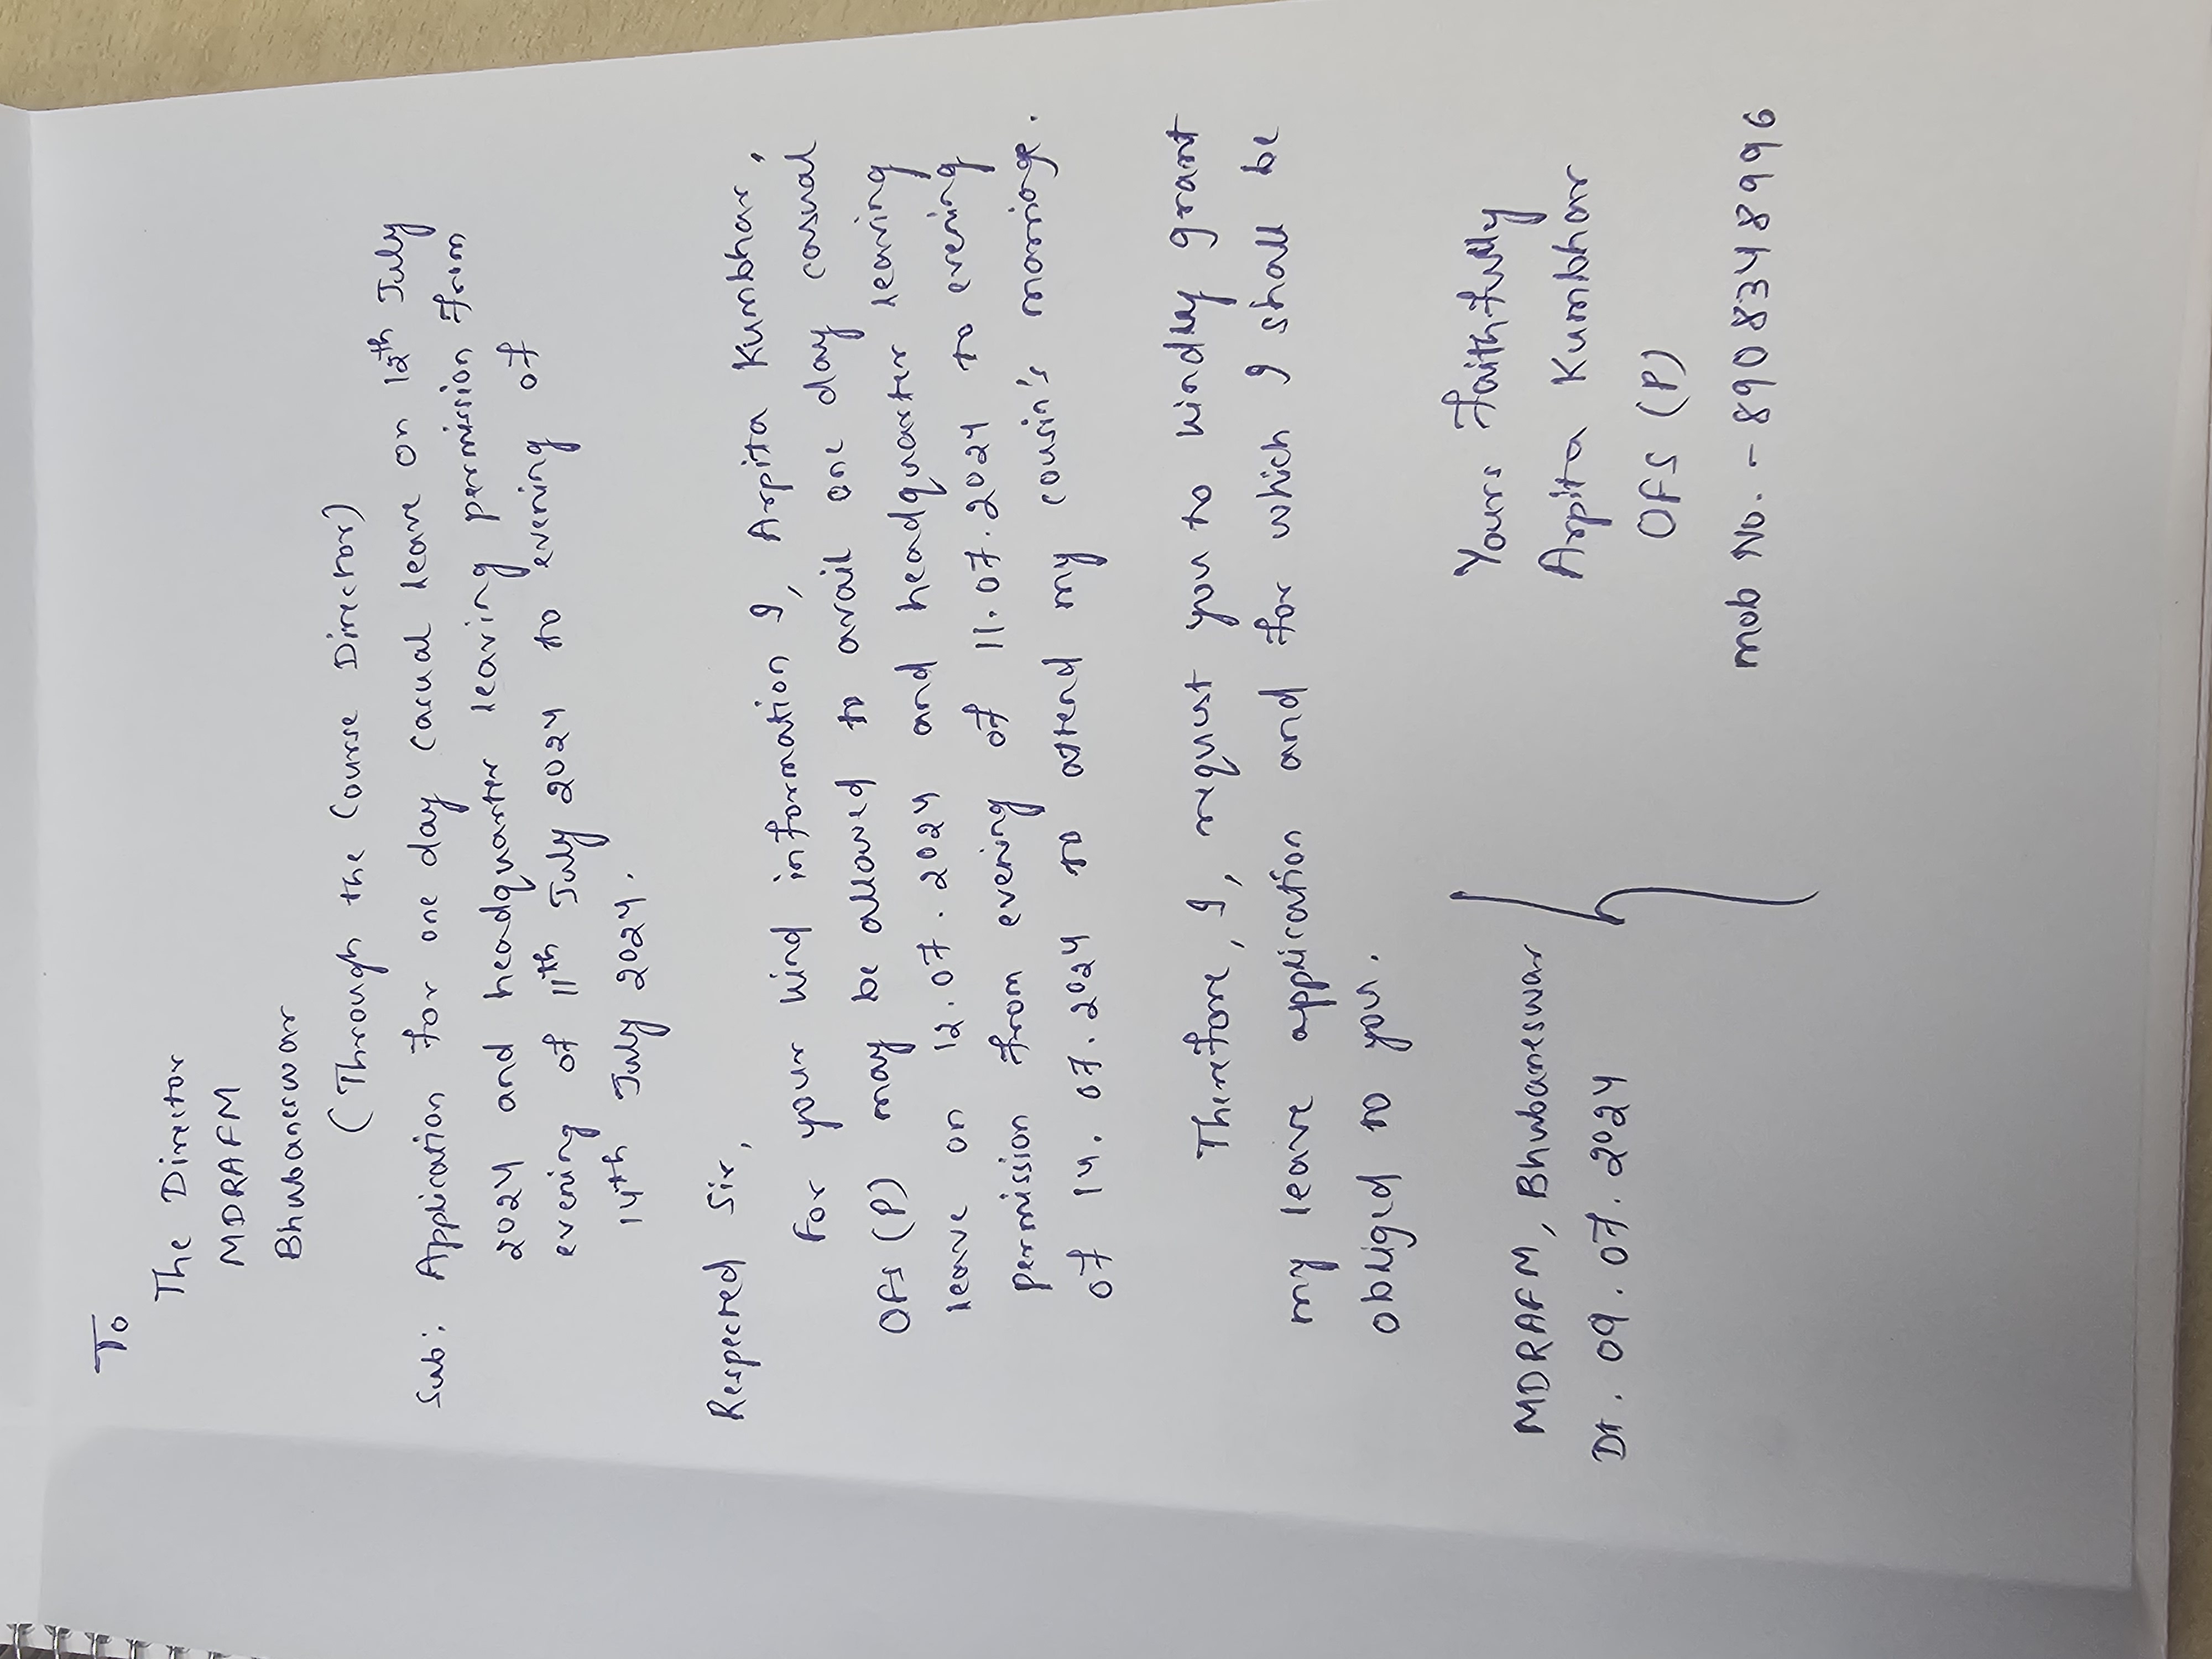 To
The Director
MDRAFM
Bhubaneswar
(Through the Course Director)
Sub: Application for one day casual leave on 12th July
2024 and headquarter leaving permission from
evening of 11th July 2024 to evening of
14th July 2024.
Respected Sir,
For your kind information I, Arpita Kumbhar,
OFS (P) may be allowed to avail one day casual
leave on 12.07.2024 and headquarter leaving
permission from evening of 11.07.2024 to evening
of 14.07.2024 to attend my cousin's marriage.
Therefore, I, request you to kindly grant
my leave application and for which I shall be
obliged to you.
MDRAFM, Bhubaneswar
Dt. 09.07.2024
Yours Faithfully
Arpita Kumbhar
OFS (P)
Mob No. - 8908348996